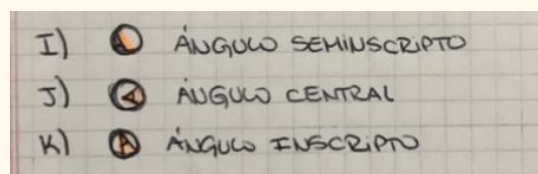 I) ÁNGULO SEMINSCRIPTO
J) ÁNGULO CENTRAL
K) ÁNGULO INSCRIPTO